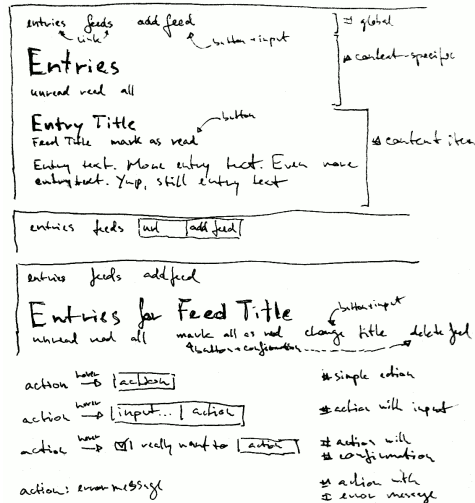 entries feeds add feed # global
link button + input
Entries # content-specific
unread read all
Entry Title button
Feed Title mark as read # content item
Entry text. More entry text. Even more
entry text. Yup, still entry text
entries feeds url add feed
entries feeds add feed
Entries for Feed Title button+input
unread read all mark all as read change title delete feed
button+confirmation
action hover action # simple action
action hover input... action # action with input
action hover I really want to action # action with
# confirmation
action: error message # action with
# error message